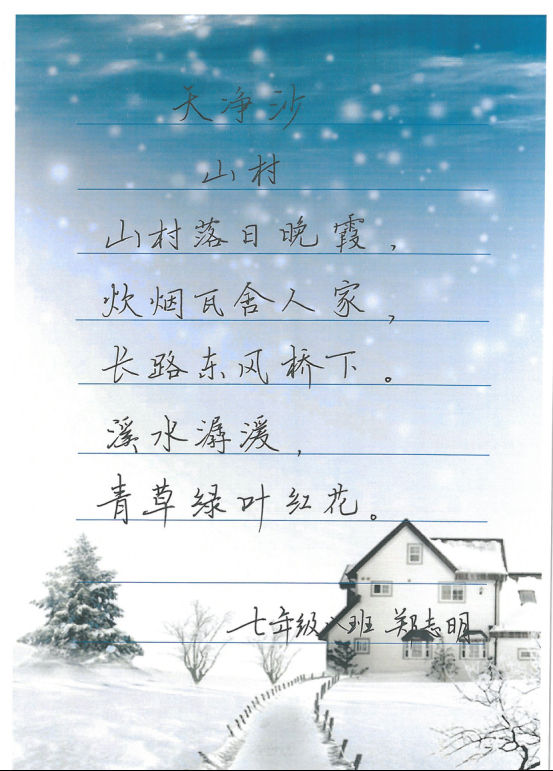 天净沙
山村
山村落日晚霞，
炊烟瓦舍人家，
长路东风桥下。
溪水潺湲，
青草绿叶红花。
七年级八班 郑志明